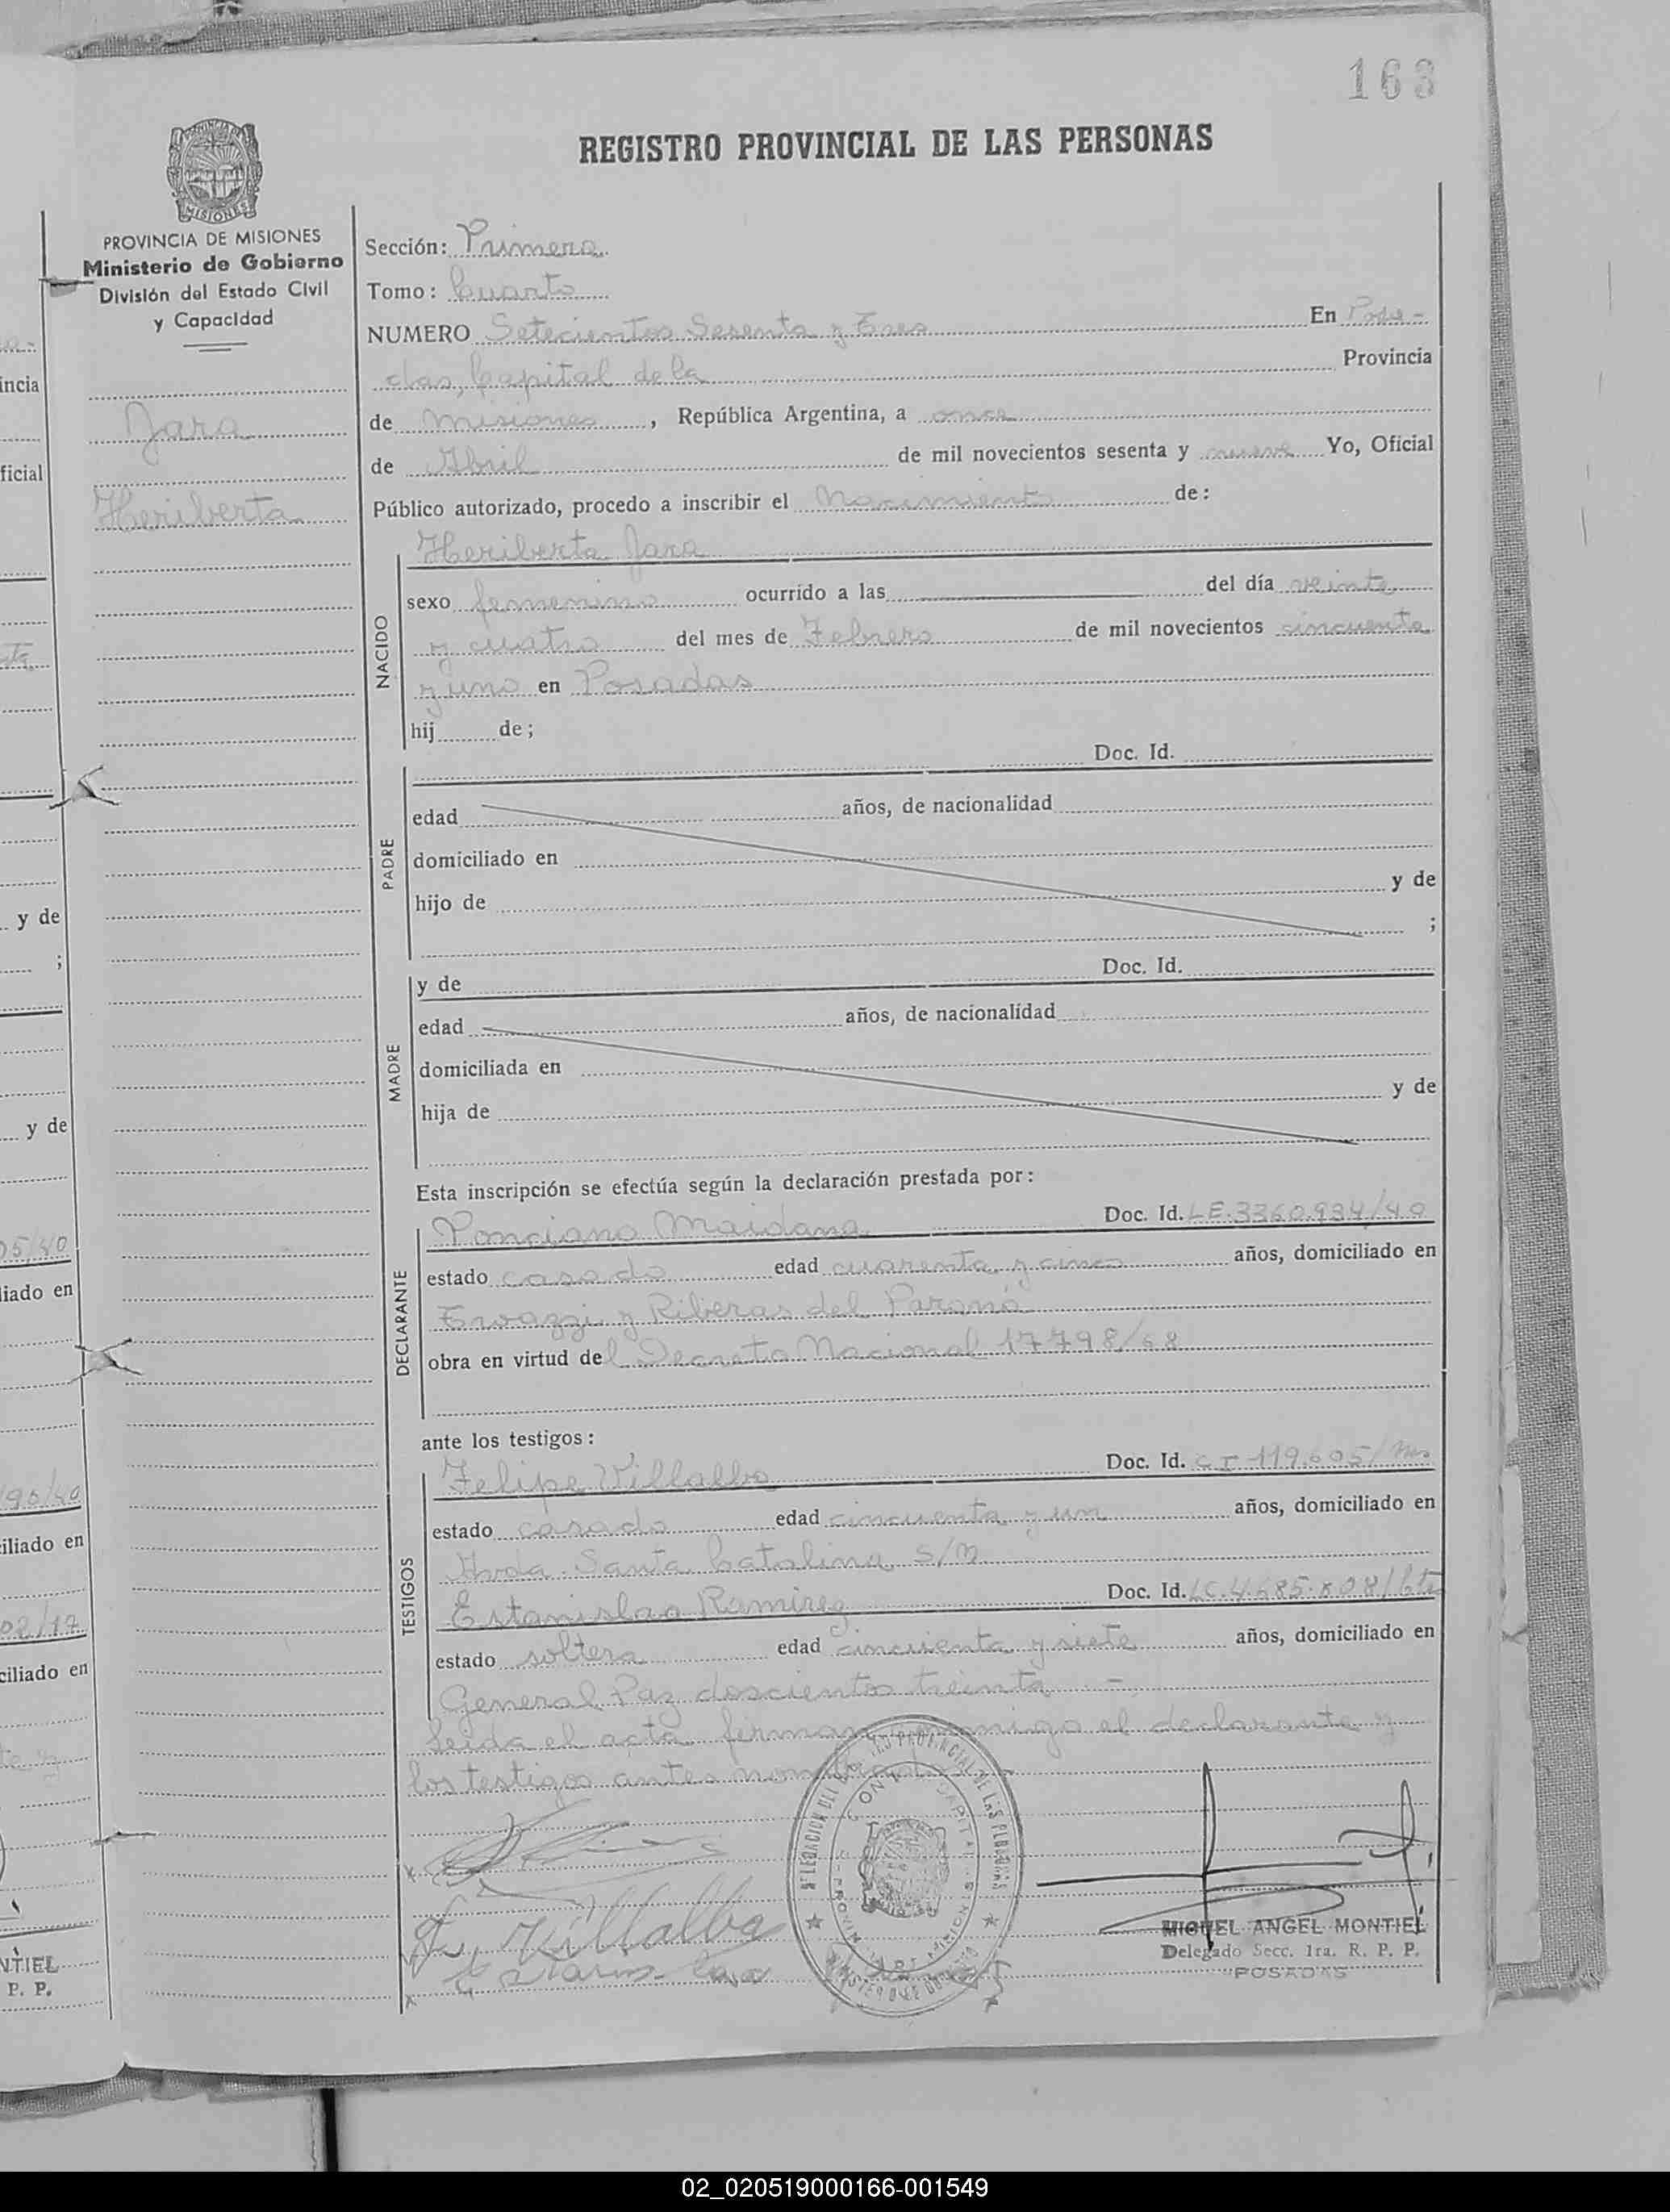 163
REGISTRO PROVINCIAL DE LAS PERSONAS
MISIONES
PROVINCIA DE MISIONES
Ministerio de Gobierno
División del Estado Civil
y Capacidad
Jara
Heriberta
Sección: Primera
Tomo: Cuarto
NUMERO Setecientos Sesenta y Tres En Posa-
das, Capital de la Provincia
de Misiones, República Argentina, a once
de Abril de mil novecientos sesenta y nueve Yo, Oficial
Público autorizado, procedo a inscribir el Nacimiento de:
Heriberta Jara
NACIDO
sexo femenino ocurrido a las del día veinte
y cuatro del mes de Febrero de mil novecientos cincuenta
y uno en Posadas
hij de;
Doc. Id.
PADRE
edad años, de nacionalidad
domiciliado en
hijo de y de
;
y de Doc. Id.
MADRE
edad años, de nacionalidad
domiciliada en
hija de y de
Esta inscripción se efectúa según la declaración prestada por:
Ponciano Maidana Doc. Id. LE.3360.934/40
DECLARANTE
estado casado edad cuarenta y cinco años, domiciliado en
y Riberas del Paraná
obra en virtud del Decreto Nacional 17798/68
ante los testigos:
Felipe Villalba Doc. Id. CI 119.605/Mes
TESTIGOS
estado casado edad cincuenta y un años, domiciliado en
Avda. Santa Catalina S/N
Estanislaa Ramirez Doc. Id. LC.4.685.808/
estado soltera edad cincuenta y siete años, domiciliado en
General Paz doscientos treinta -
Leida el acta firman conmigo el declarante y
los testigos antes nombrados
F. Villalba
MIGUEL ANGEL MONTIEL
Delegado Secc. 1ra. R. P. P.
POSADAS
incia
ficial
y de
;
y de
05/40
liado en
90/40
iliado en
02/17
ciliado en
NTIEL
P. P.
02_020519000166-001549